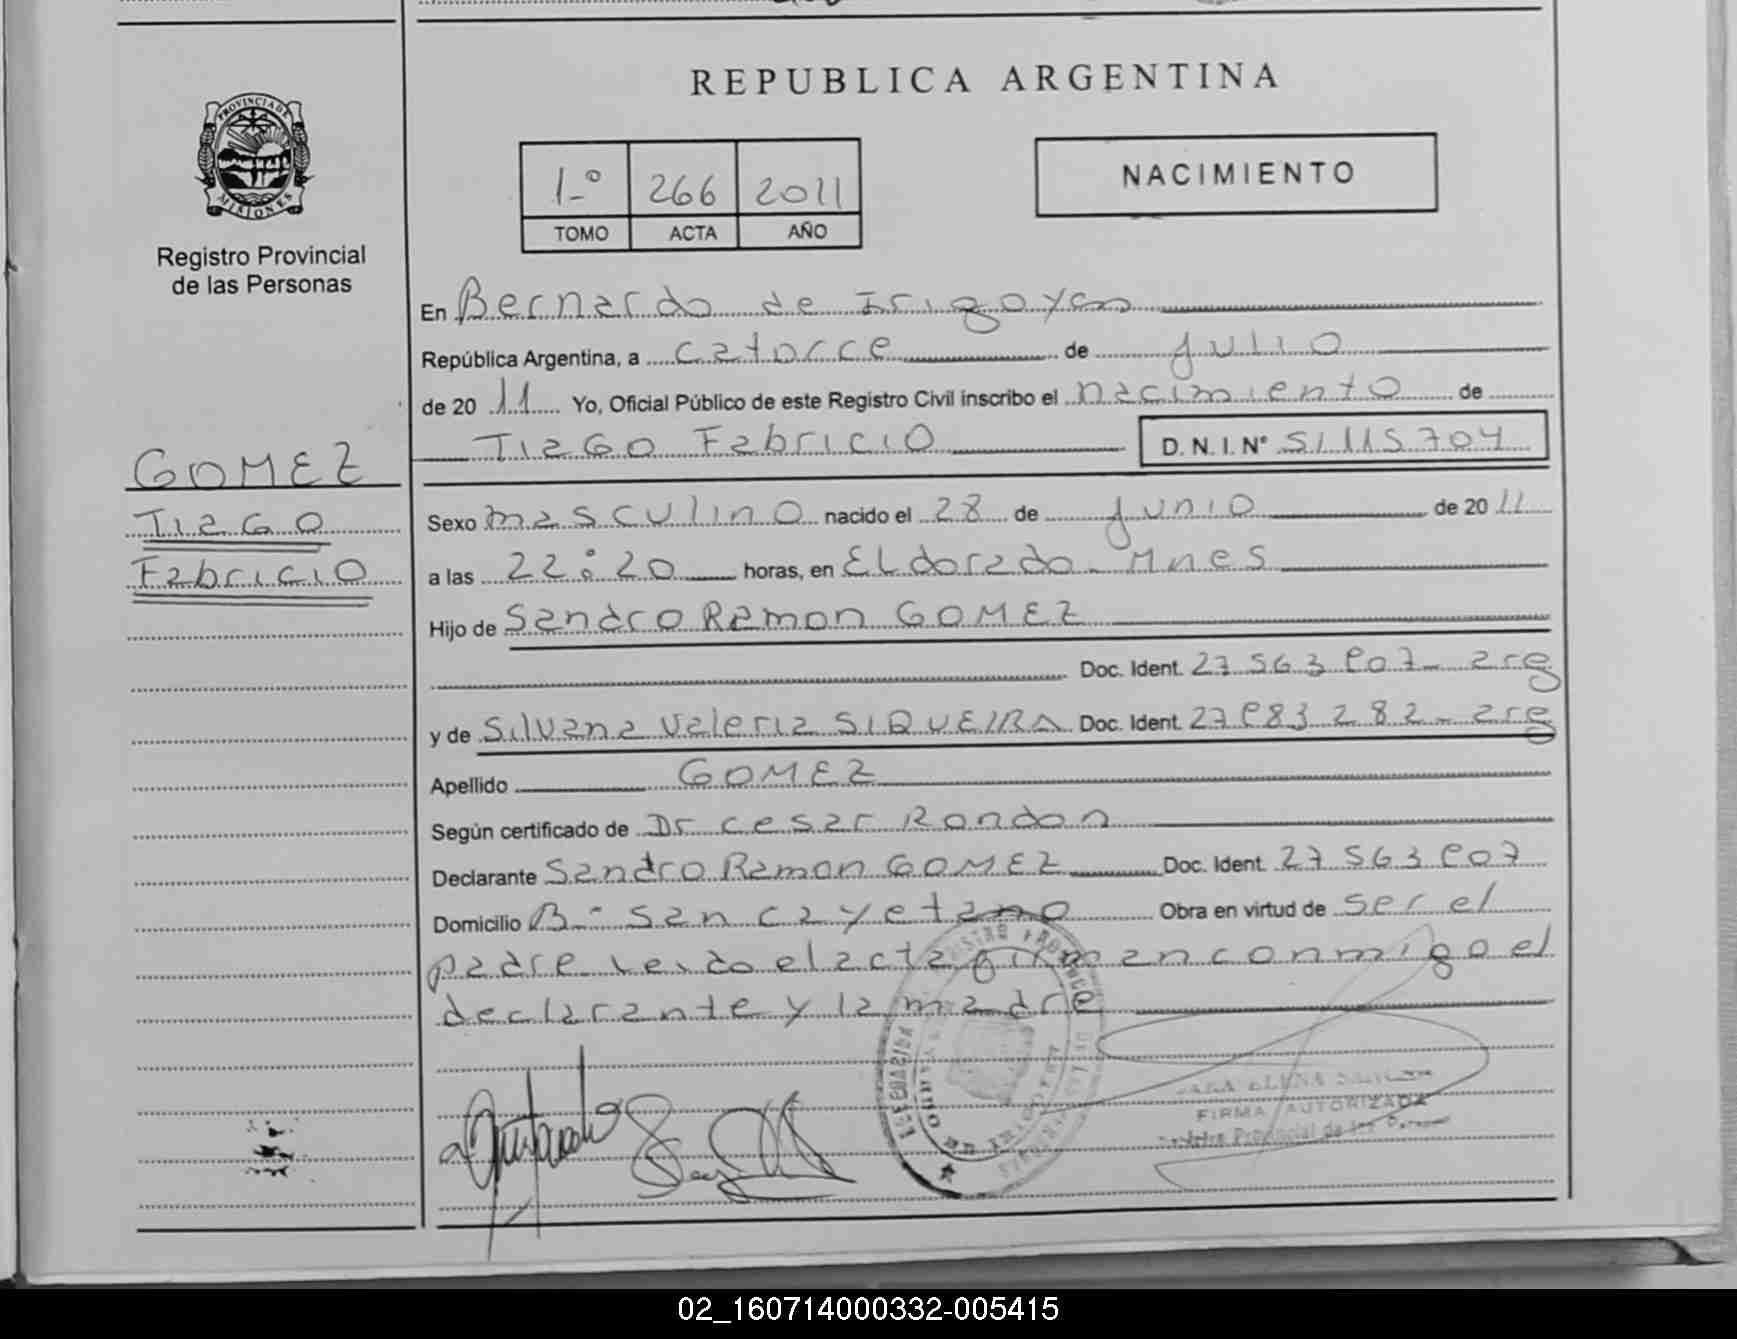 REPUBLICA ARGENTINA
PROVINCIA DE
MISIONES
Registro Provincial
de las Personas
1º 266 2011
TOMO ACTA AÑO
NACIMIENTO
En Bernardo de Irigoyen
República Argentina, a catorce de julio
de 2011 Yo, Oficial Público de este Registro Civil inscribo el nacimiento de
Tiago Fabricio D. N. I. Nº 51115704
GOMEZ
Tiago
Fabricio
Sexo masculino nacido el 28 de junio de 2011
a las 22:20 horas, en Eldorado - Mnes
Hijo de Sandro Ramon GOMEZ
Doc. Ident. 27 563 807 - arg
y de Silvana Valeria SIQUEIRA Doc. Ident. 27 883 282 - arg
Apellido GOMEZ
Según certificado de Dr Cesar Rondon
Declarante Sandro Ramon GOMEZ Doc. Ident. 27 563 807
Domicilio Bº San Cayetano Obra en virtud de ser el
padre leido el acta firman conmigo el
declarante y la madre
ELENA
FIRMA AUTORIZADA
Registro Provincial de las Personas
02_160714000332-005415